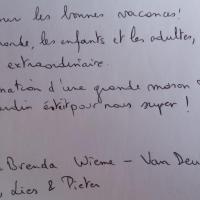 les bonnes vacances!
les enfants et les adultes,
extraordinaire.
d'une grande maison
était pour nous super!
Brenda Wieme - Van
, Lies & Pieter